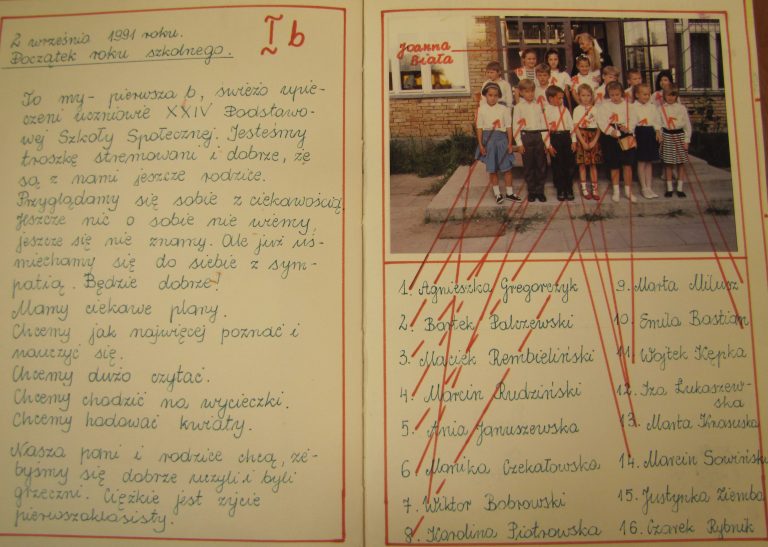 2 września 1991 roku.
Początek roku szkolnego.
I b
To my - pierwsza b, świeżo upie-
czeni uczniowie XXIV Podstawo-
wej Szkoły Społecznej. Jesteśmy
troszkę stremowani i dobrze, że
są z nami jeszcze rodzice.
Przyglądamy się sobie z ciekawością
Jeszcze nic o sobie nie wiemy,
jeszcze się nie znamy. Ale już uś-
miechamy się do siebie z sym-
patią. Będzie dobrze!
Mamy ciekawe plany.
Chcemy jak najwięcej poznać i
nauczyć się.
Chcemy dużo czytać.
Chcemy chodzić na wycieczki.
Chcemy hodować kwiaty.
Nasza pani i rodzice chcą, że-
byśmy się dobrze uczyli i byli
grzeczni. Ciężkie jest życie
pierwszoklasisty.
Joanna
Biała
1. Agnieszka Gregorczyk
2. Bartek Palczewski
3. Maciek Rembieliński
4. Marcin Rudziński
5. Ania Januszewska
6. Monika Czekałowska
7. Wiktor Bobrowski
8. Karolina Piotrowska
9. Marta Milusz
10. Emila Bastian
11. Wojtek Kępka
12. Iza Łukaszew-
ska
13. Marta Krasuska
14. Marcin Sowiński
15. Justynka Ziemba
16. Czarek Rybnik